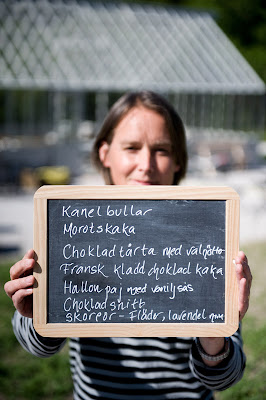 Kanelbullar
Morotskaka
Choklad tårta med valnötter
Fransk kladd choklad kaka
Hallon paj med vaniljsås
Choklad snitt
skorpor - Fläder, lavendel mm